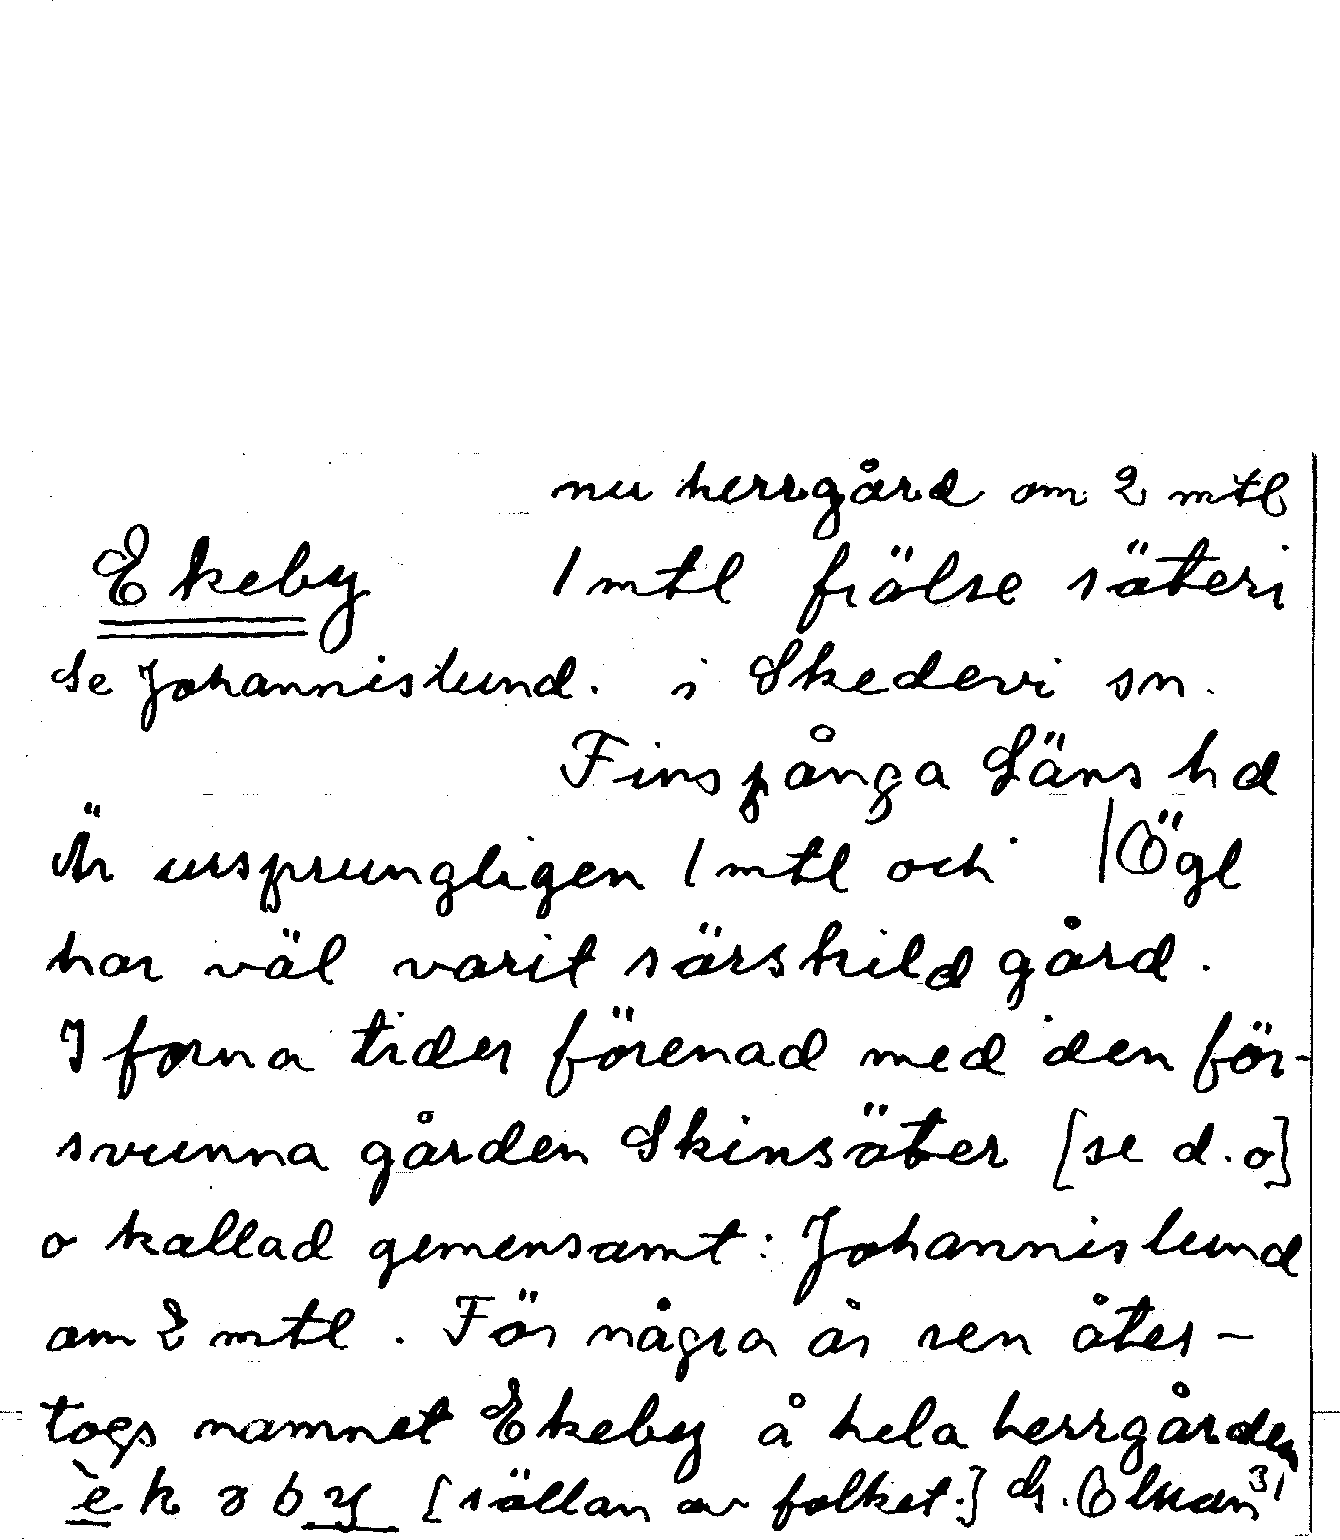 nu herrgård om 2 mtl
Ekeby 1 mtl frälse säteri
Se Johannislund. i Skedevi sn.
Finspånga Läns hd
Är ursprungligen 1 mtl och Ögl
har väl varit särskild gård.
I forna tider förenad med den för-
svunna gården Skinsäter [se d.o]
o kallad gemensamt: Johannislund
om 2 mtl. För några år sen åter-
togs namnet Ekeby å hela herrgården
è k ə b y [sällan av folket.]